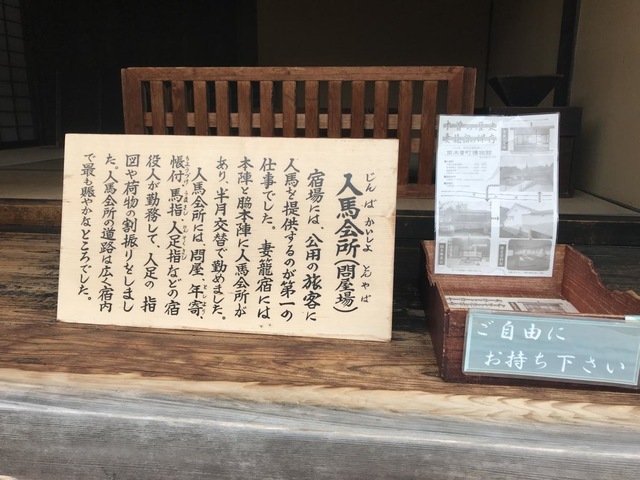 入馬会所(問屋場)
じんばかいしよ とんやば
宿場には、公用の旅客に
人馬を提供するのが第一の
仕事でした。妻籠宿には
本陣と脇本陣に人馬会所が
あり、半月交替で勤めました。
人馬会所には、問屋、年寄、
帳付、馬指、人足指などの宿
役人が勤務して、人足の指
図や荷物の割振りをしまし
た。人馬会所の道路は広く宿内
で最も賑やかなところでした。
南木曽町博物館
ご自由に
お持ち下さい